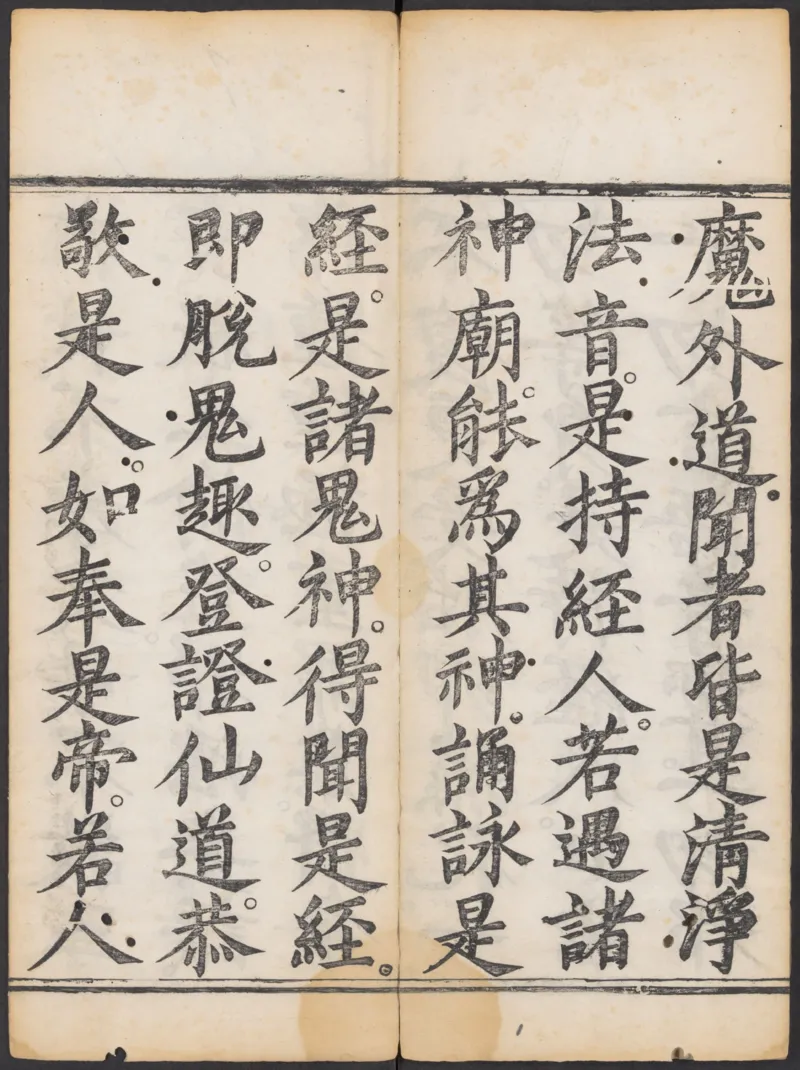 魔外道聞者皆是清淨
法音。是持経人。若遇諸
神廟。能為其神。誦詠是
経。是諸鬼神。得聞是経。
即脫鬼趣。登證仙道。恭
敬是人。如奉是帝。若人